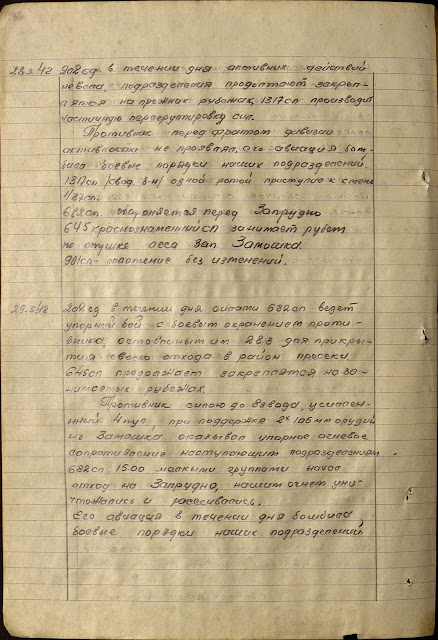 28.3.42 202сд в течении дня активных действий
не вела, подразделения продолжают закреп-
лятся на прежних рубежах, 1317сп производит
частичную перегруппировку сил.
Противник перед фронтом дивизии
активности не проявлял, его авиация бом-
била боевые порядки наших подразделений.
1317сп /свод. б-н/ одной ротой приступил к смене
1/87сп.
682сп обороняется перед Запрудно
645 краснознаменный сп занимает рубеж
по опушке леса зап. Замошка.
901сп- положение без изменений.
29.3.42 202сд в течении дня силами 682сп ведет
упорный бой с боевым охранением проти-
вника, оставленым им 28.3 для прикры-
тия своего отхода в район просеки
645сп продолжает закрепятся на за-
нимаемых рубежах.
Противник силою до взвода, усилен-
ный 4 пул, при поддержке 2х 105 мм орудий
из Замошка оказывал упорное огневое
сопротивление наступающим подразделениям
682сп, 15.00 мелкими группами начал
отход на Запрудно, нашим огнем уни-
чтожались и рассеивались.
Его авиация в течении дня бомбила
боевые порядки наших подразделений